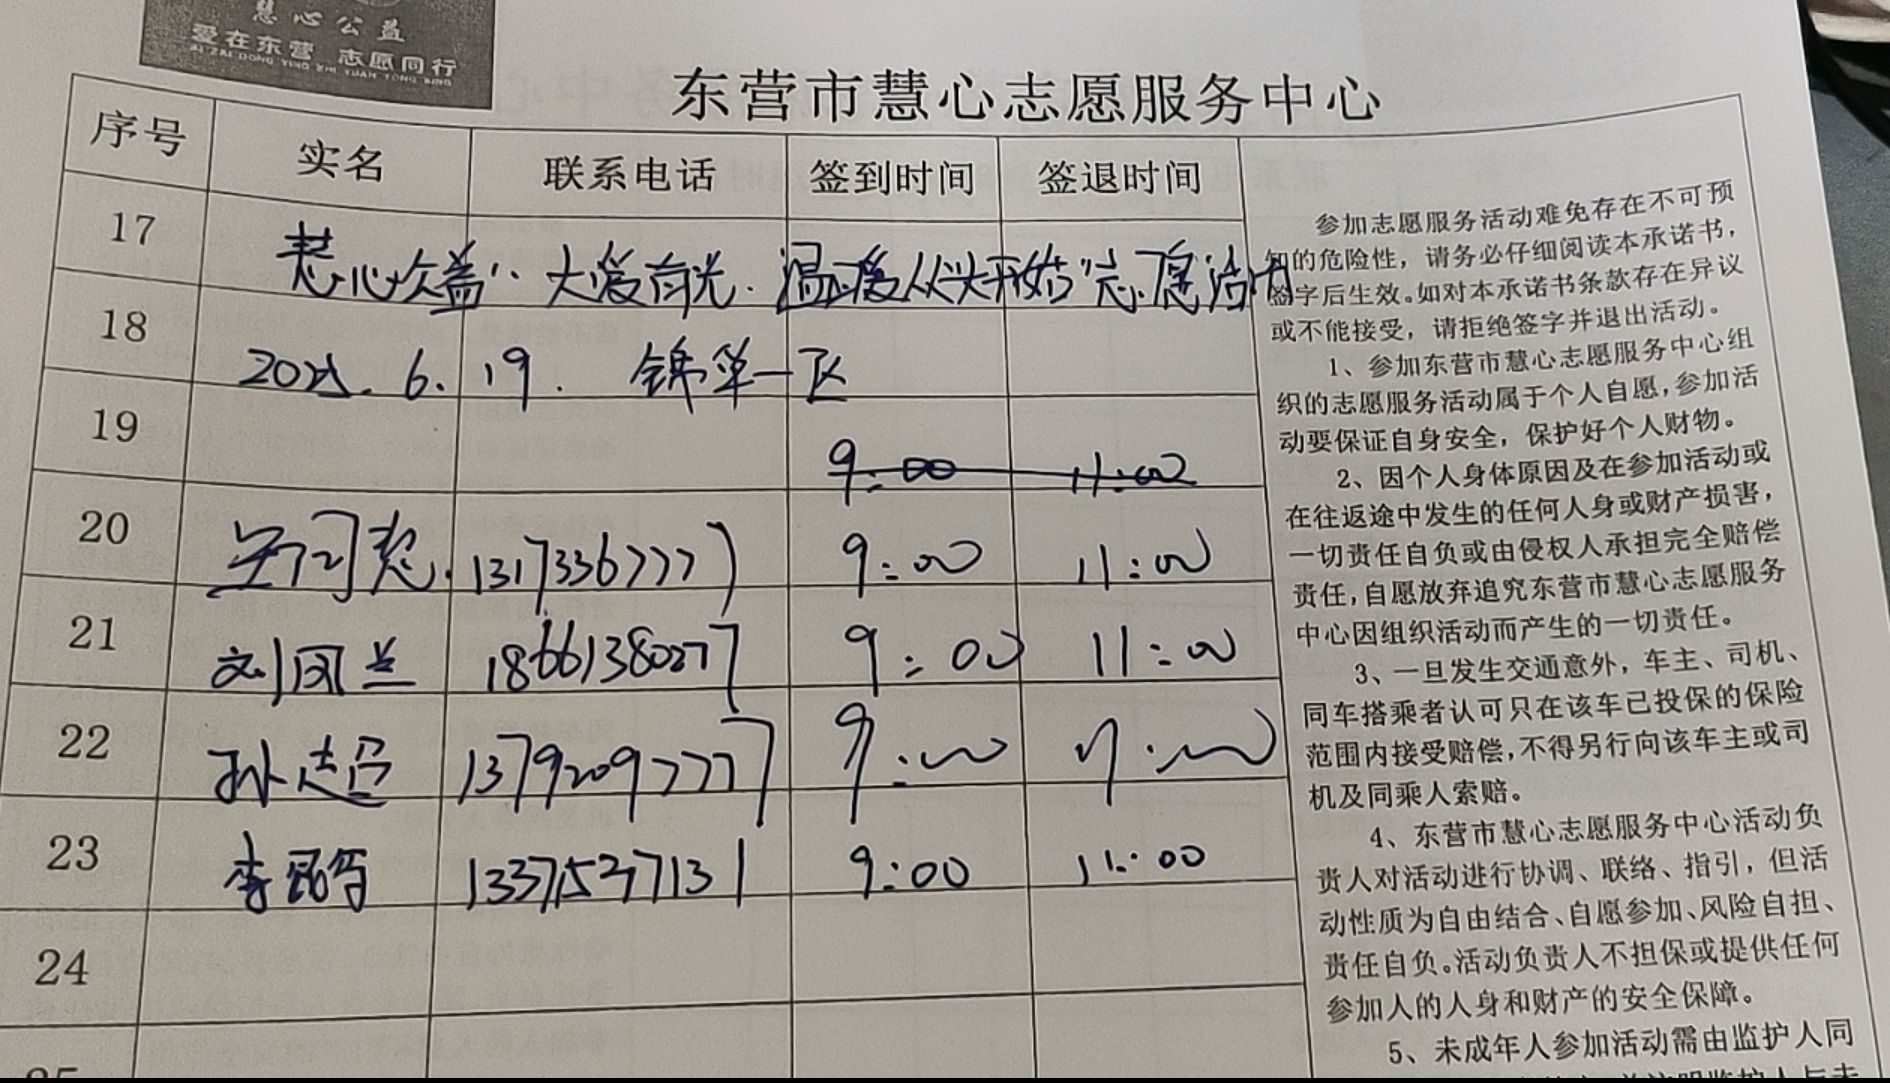 慧心公益
爱在东营 志愿同行
AI ZAI DONG YING ZHI YUAN TONG XING
东营市慧心志愿服务中心
序号 实名 联系电话 签到时间 签退时间
17 慧心公益“大爱有光.温暖从头开始”志愿活动
18 2025.6.19. 锦华一区
19 9:00 11:00
20 13173367777 9:00 11:00
21 刘同兰 18661380277 9:00 11:00
22 孙志昌 13792097777 9:00 11:00
23 李 13371527131 9:00 11:00
24
25
参加志愿服务活动难免存在不可预
知的危险性，请务必仔细阅读本承诺书，
签字后生效。如对本承诺书条款存在异议
或不能接受，请拒绝签字并退出活动。
1、参加东营市慧心志愿服务中心组
织的志愿服务活动属于个人自愿，参加活
动要保证自身安全，保护好个人财物。
2、因个人身体原因及在参加活动或
在往返途中发生的任何人身或财产损害，
一切责任自负或由侵权人承担完全赔偿
责任，自愿放弃追究东营市慧心志愿服务
中心因组织活动而产生的一切责任。
3、一旦发生交通意外，车主、司机、
同车搭乘者认可只在该车已投保的保险
范围内接受赔偿，不得另行向该车主或司
机及同乘人索赔。
4、东营市慧心志愿服务中心活动负
责人对活动进行协调、联络、指引，但活
动性质为自由结合、自愿参加、风险自担、
责任自负。活动负责人不担保或提供任何
参加人的人身和财产的安全保障。
5、未成年人参加活动需由监护人同